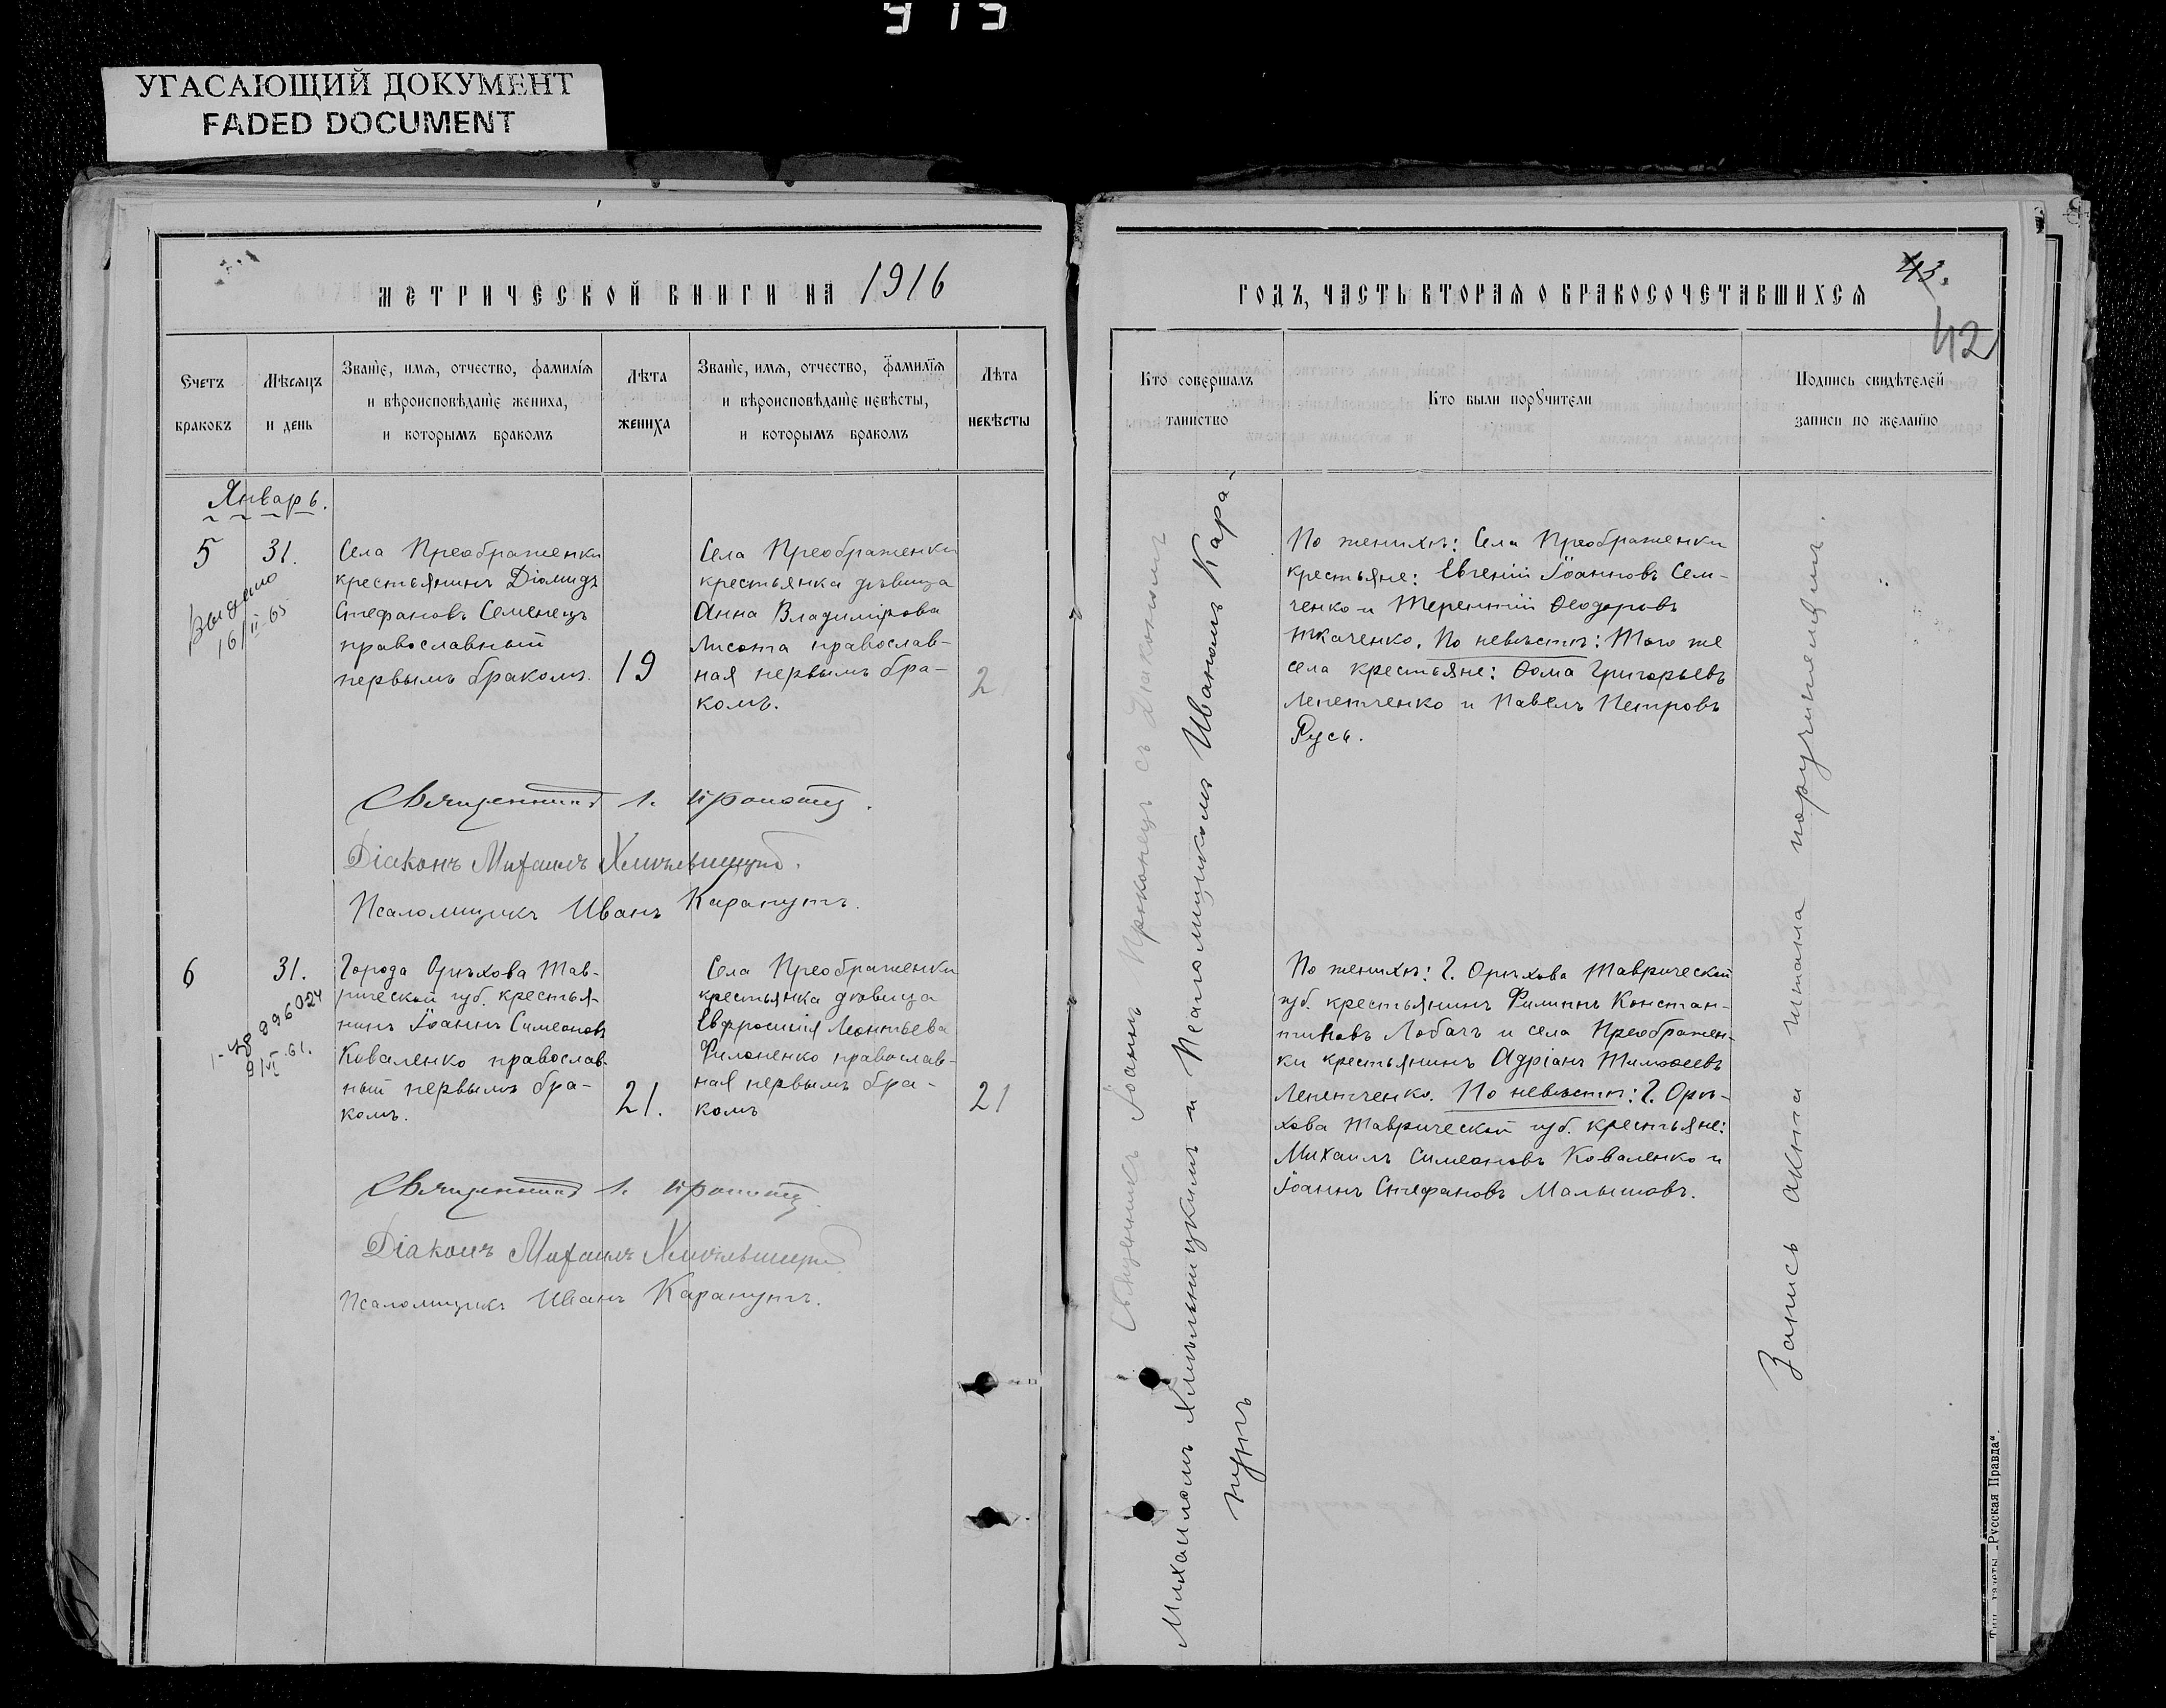 УГАСАЮЩИЙ ДОКУМЕНТ
FADED DOCUMENT
МЕТРИЧЕСКОЙ КНИГИ НА 1916
Счетъ браковъ
Мѣсяцъ и день
Званіе, имя, отчество, фамилія
и вѣроисповѣданіе жениха,
и которымъ бракомъ
Лѣта жениха
Званіе, имя, отчество, фамилія
и вѣроисповѣданіе невѣсты,
и которымъ бракомъ
Лѣта невѣсты
Январь.
5
31.
Выдано
16/II 65
Села Преображенки
крестьянинъ Діомидъ
Стефановъ Семенецъ
православный
первымъ бракомъ.
19
Села Преображенки
крестьянка дѣвица
Анна Владимірова
Лисота православ-
ная первымъ бра-
комъ.
2
Священникъ І.
Діаконъ Михаилъ
Псаломщикъ Иванъ Карапутъ.
6
31.
9/VI.61.
Города Орѣхова Тав-
рической губ. крестья-
нинъ Іоаннъ Симеоновъ
Коваленко православ-
ный первымъ бра-
комъ.
21.
Села Преображенки
крестьянка дѣвица
Евфросинія Леонтьева
Филоненко православ-
ная первымъ бра-
комъ
21
Священникъ І.
Діаконъ Михаилъ
Псаломщикъ Иванъ Карапутъ.
ГОДЪ, ЧАСТЬ ВТОРАЯ О БРАКОСОЧЕТАВШИХСЯ
43.
42
Кто совершалъ
таинство
Кто были поручители
Подпись свидѣтелей
записи по желанію
Священникъ Іоаннъ съ Діакономъ
Михаиломъ Хмѣльницкимъ и Псаломщикомъ Иваномъ Кара-
путъ
По женихѣ: Села Преображенки
крестьяне: Евгеній Іоанновъ Сем-
ченко и Терентій Ѳеодоровъ
Ткаченко. По невѣстѣ: Того же
села крестьяне: Ѳома Григорьевъ
Лепетченко и Павелъ Петровъ
Русь.
По женихѣ: Г. Орѣхова Таврической
губ. крестьянинъ Филиппъ Констан-
тиновъ Лобачъ и села Преображен-
ки крестьянинъ Адріанъ Тимоѳеевъ
Лепетченко. По невѣстѣ: Г. Орѣ-
хова Таврической губ. крестьяне:
Михаилъ Симеоновъ Коваленко и
Іоаннъ Стефановъ Малышовъ.
Запись акта читана поручителямъ.
Тип. газеты „Русская Правда“.